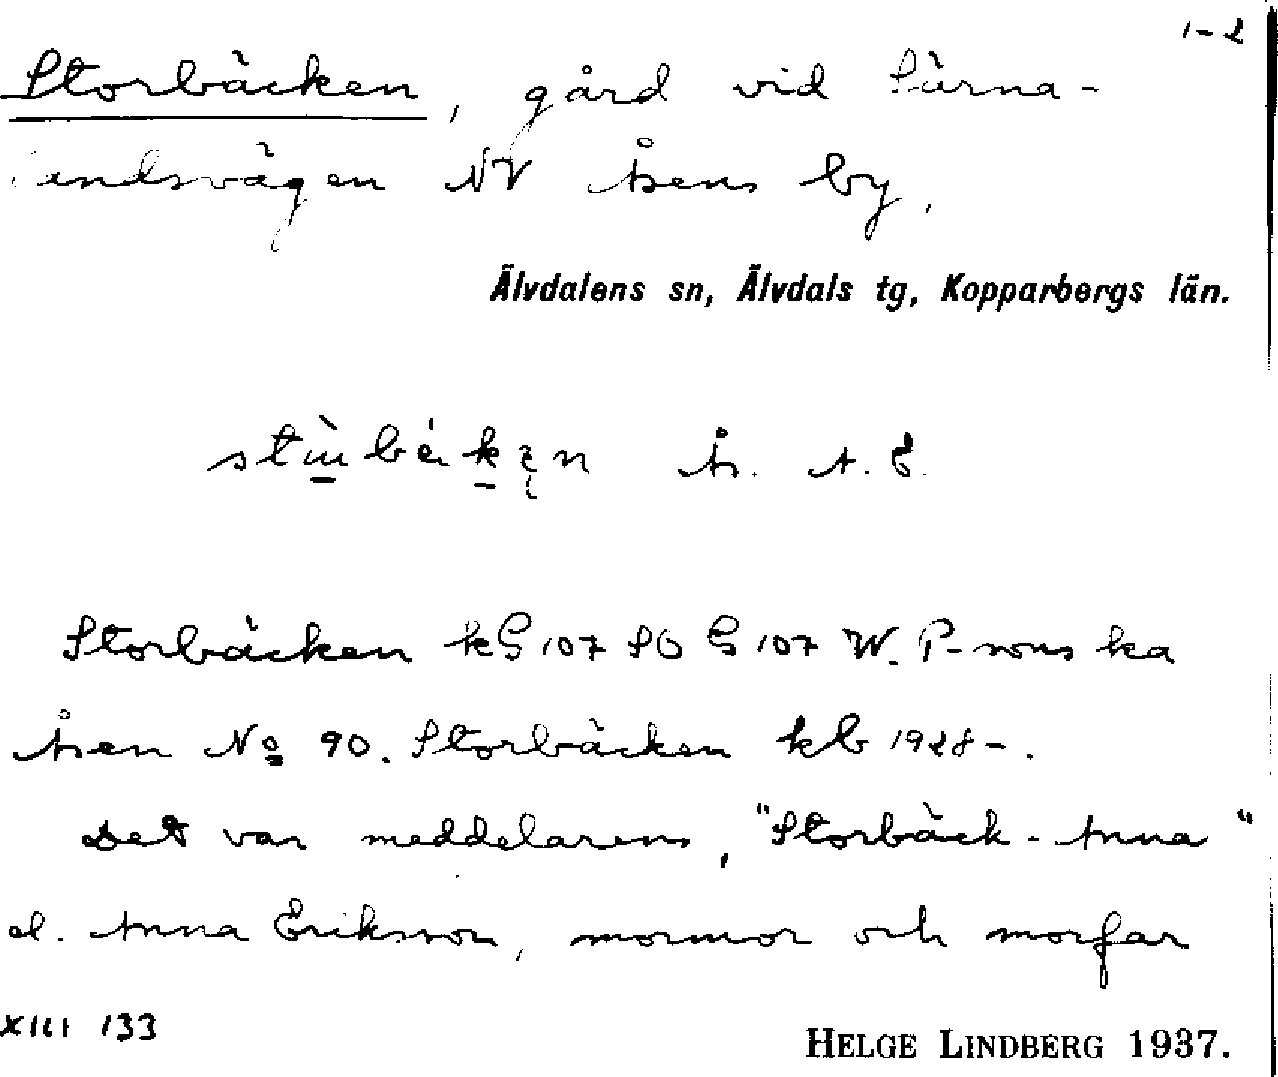 1-2
Storbäcken, gård vid Särna-
landsvägen NV Åsens by.
Älvdalens sn, Älvdals tg, Kopparbergs län.
Ås. A. E.
Storbäcken kG 107 SO G 107 W. P-sons ka
Åsen No 90. Storbäcken kb 1928-.
Det var meddelarens, "Storbäck-Anna"
el. Anna Eriksson, mormor och morfar
XIII 133
HELGE LINDBERG 1937.